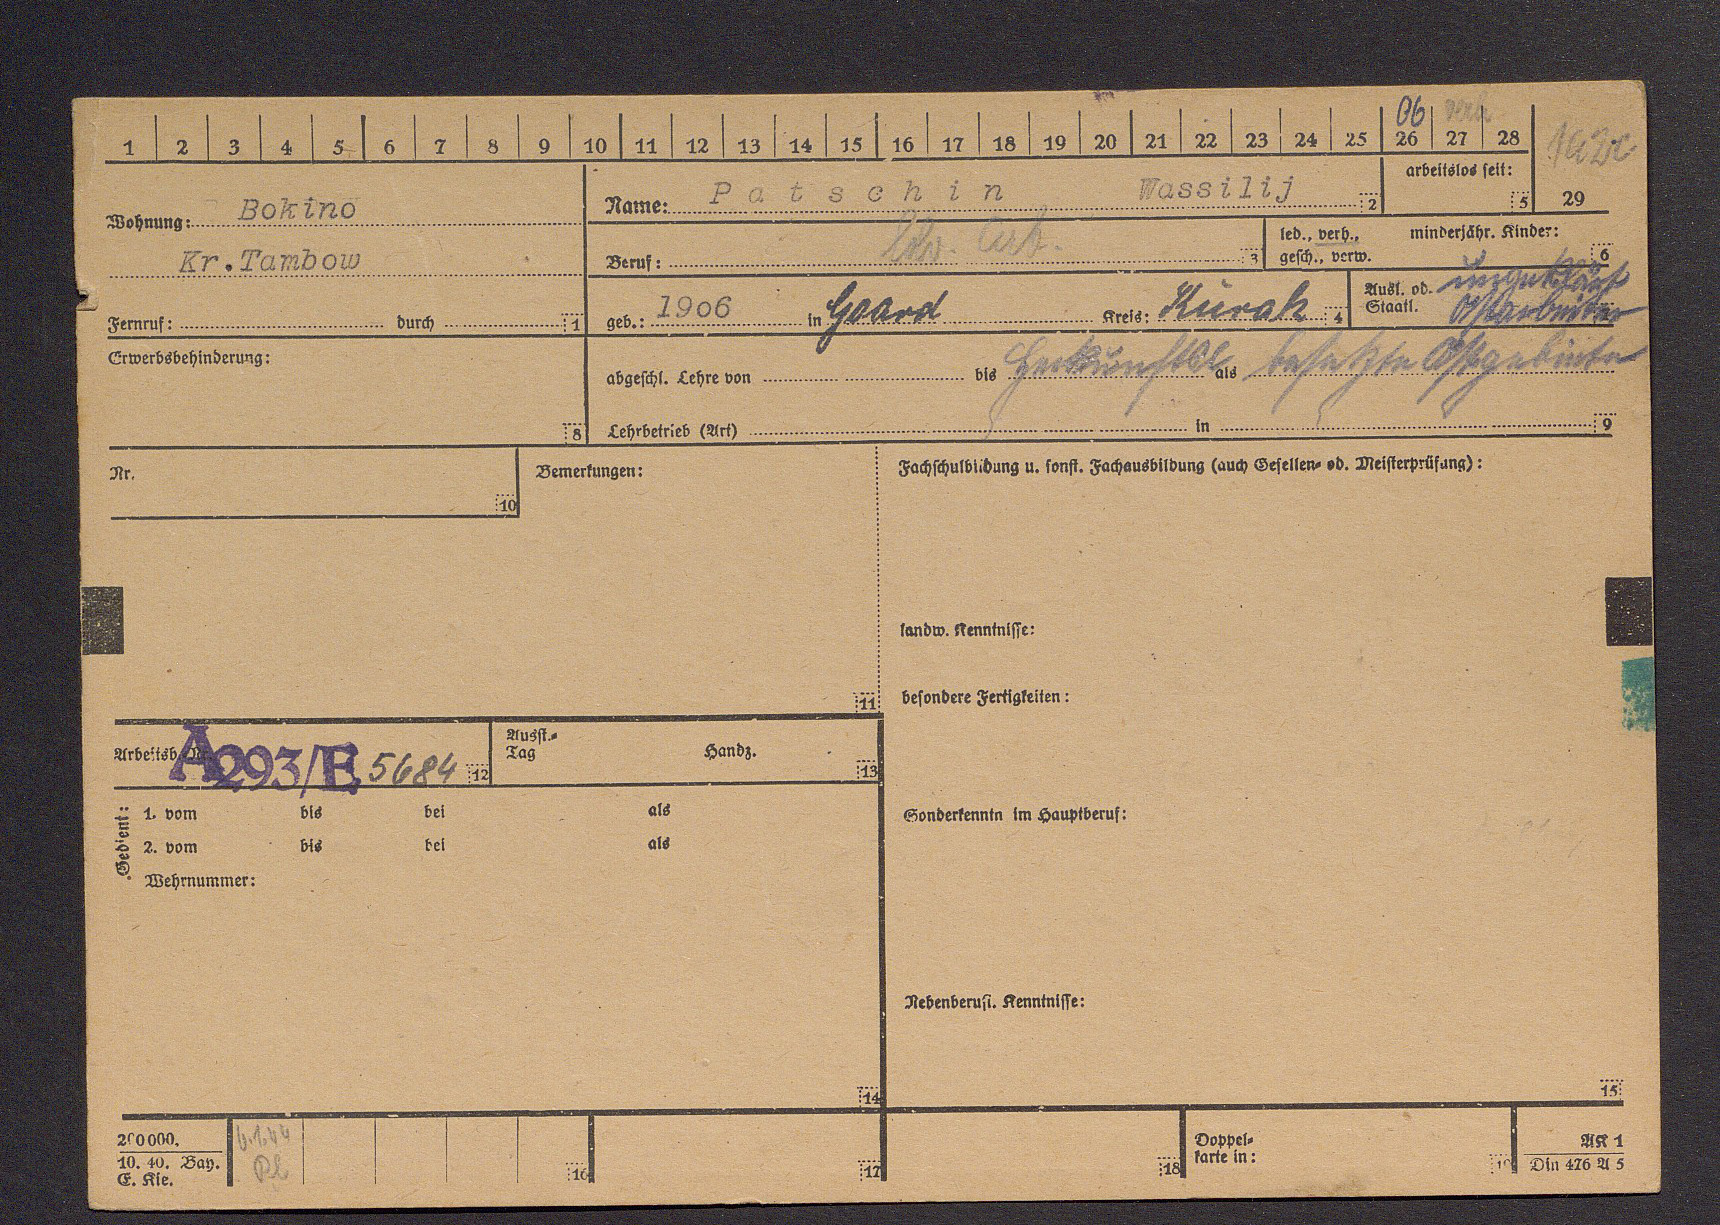 06 verh
1 2 3 4 5 6 7 8 9 10 11 12 13 14 15 16 17 18 19 20 21 22 23 24 25 26 27 28
29
Wohnung: Bokino
Kr.Tambow
Fernruf: durch 1
Name: Patschin Wassilij 2
arbeitslos seit: 5
Beruf: 3
led., verh., gesch., verw.
minderjähr. Kinder: 6
geb.: 1906 in Goard Kreis: Kursk 4
Ausl. od. Staatl. ungeklärt
Ostarbeiter
Erwerbsbehinderung: 8
abgeschl. Lehre von bis als
Herkunft besetzte Ostgebiete
Lehrbetrieb (Art) in 9
Nr. 10
Bemerkungen: 11
Fachschulbildung u. sonst. Fachausbildung (auch Gesellen- od. Meisterprüfung):
landw. Kenntnisse:
besondere Fertigkeiten:
Arbeitsb. Nr. A293/E 5684 12
Ausst.-Tag Handz. 13
Gedient:
1. vom bis bei als
2. vom bis bei als
Wehrnummer:
14
Sonderkenntn im Hauptberuf:
Nebenberufl. Kenntnisse:
15
200000.
10. 40. Bay.
E. Kie.
6.1.44
16
17
18
Doppel-
karte in: 19
AK 1
Din 476 A 5